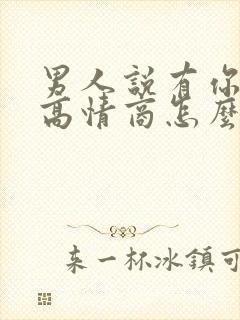 男人說有你
高情商怎麼
来一杯冰鎮可